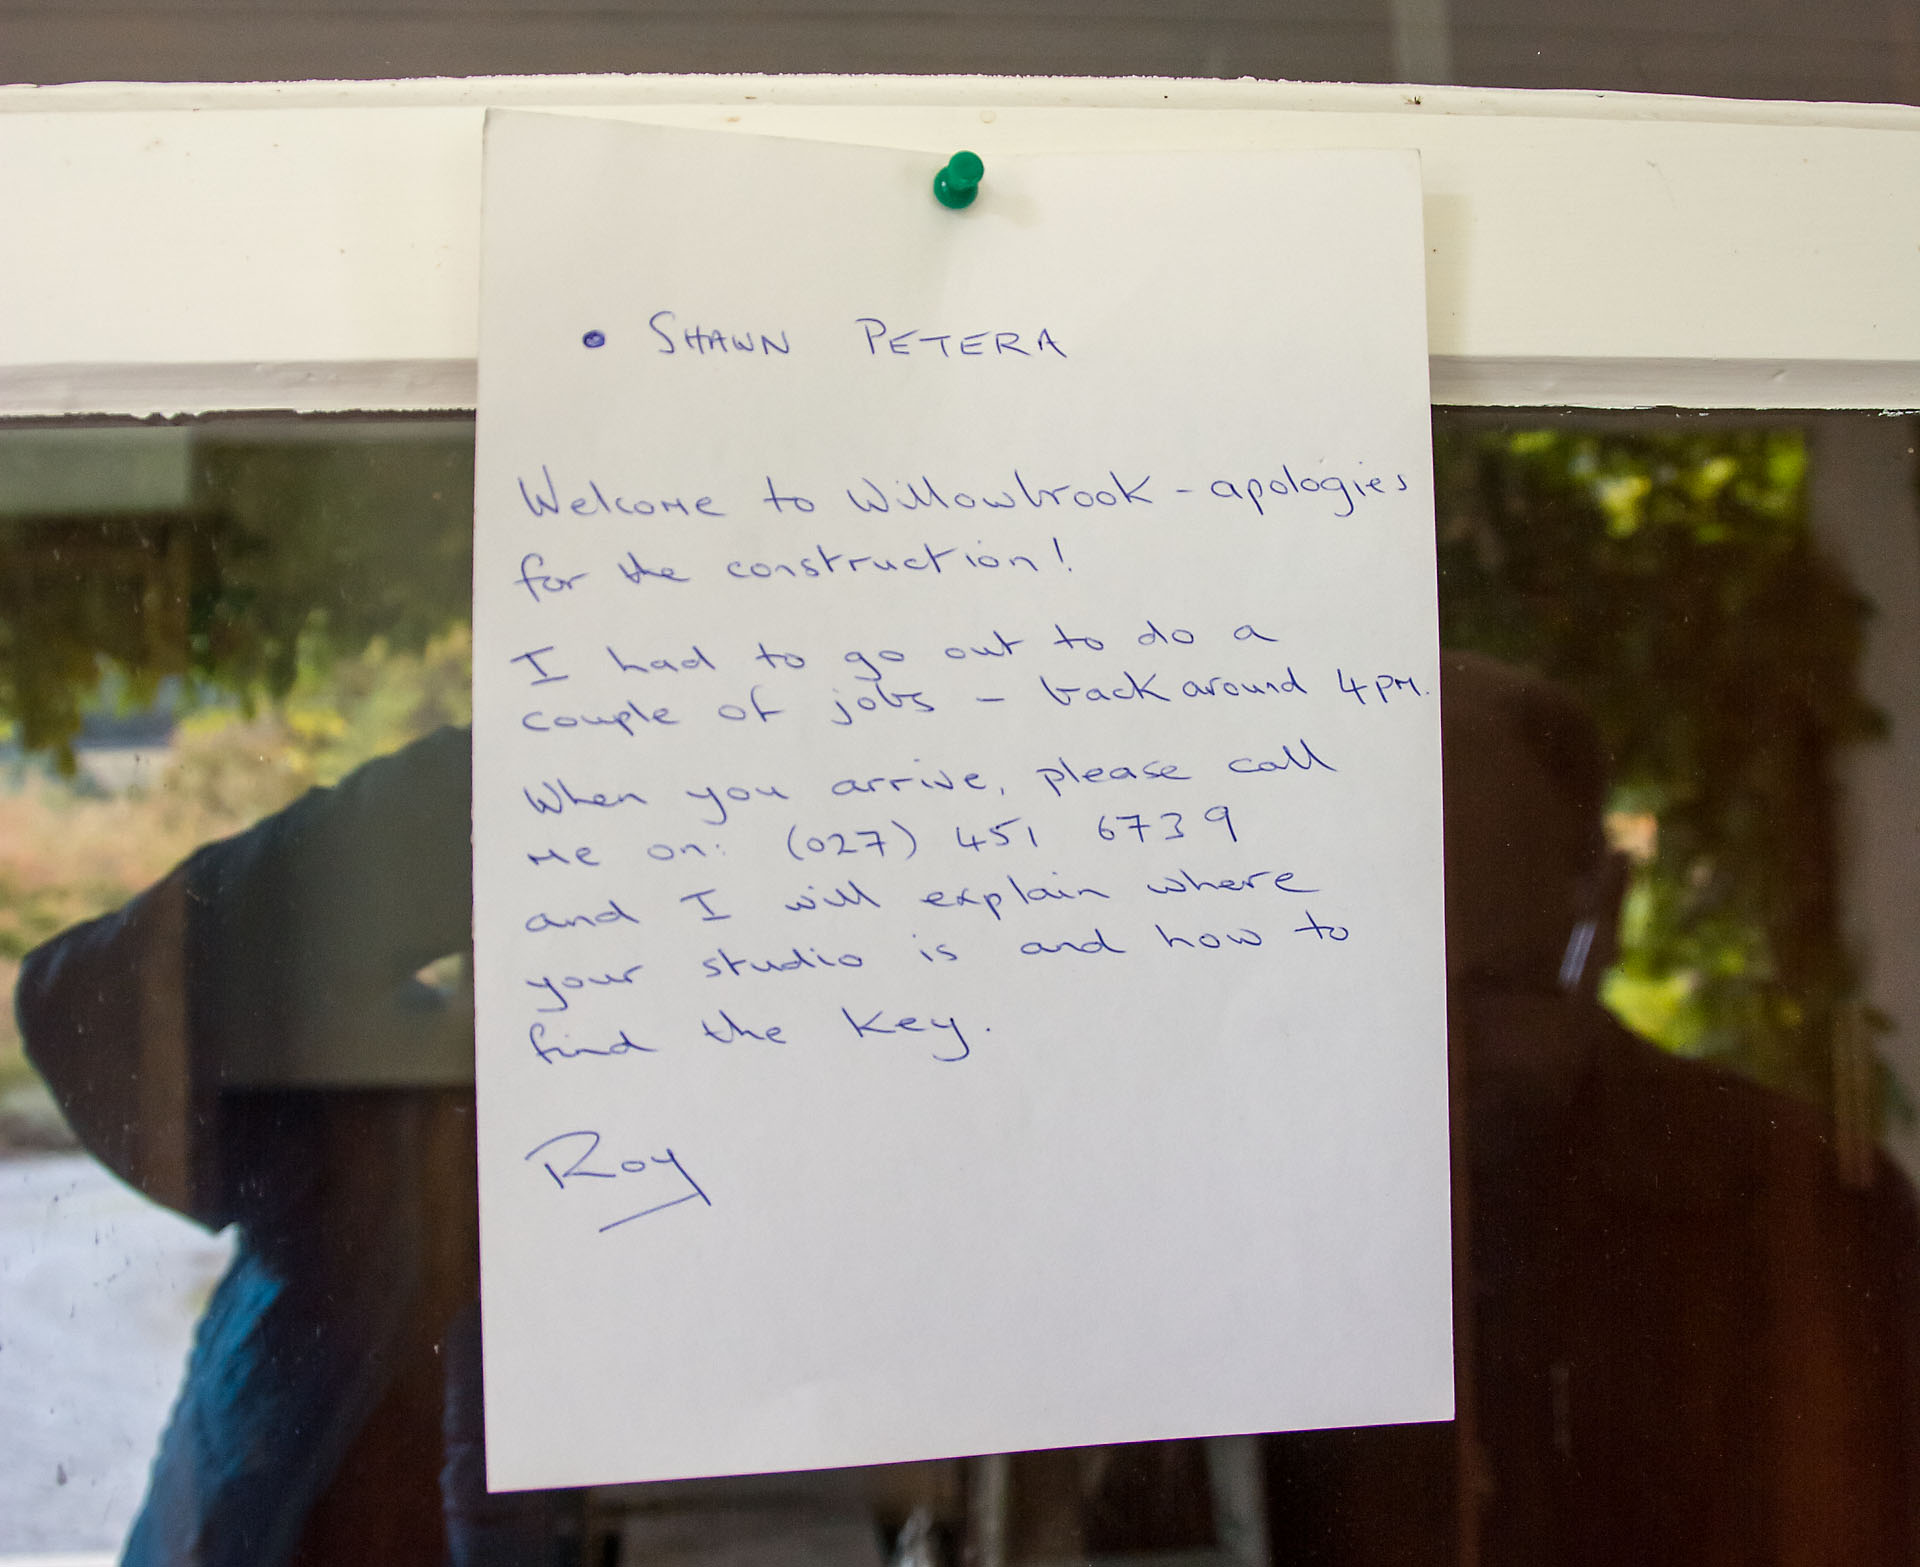 • SHAWN PETERA
Welcome to Willowbrook - apologies
for the construction!
I had to go out to do a
couple of jobs - back around 4pm.
When you arrive, please call
me on: (027) 451 6739
and I will explain where
your studio is and how to
find the key.
Roy